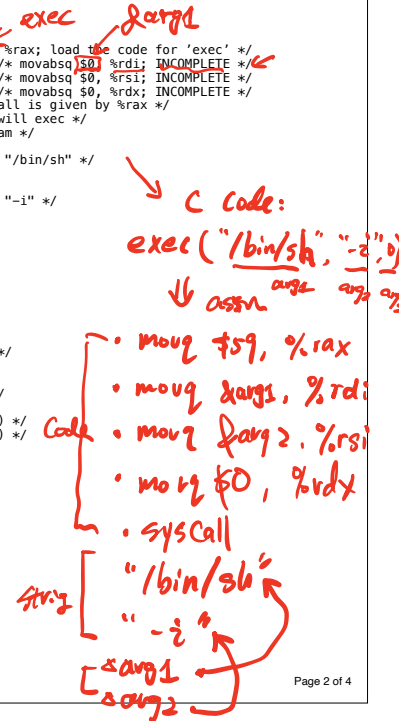 exec &arg1
%rax; load the code for 'exec' */
/* movabsq $0, %rdi; INCOMPLETE */
/* movabsq $0, %rsi; INCOMPLETE */
/* movabsq $0, %rdx; INCOMPLETE */
all is given by %rax */
will exec */
am */
"/bin/sh" */
"-i" */
C Code:
exec("/bin/sh", "-i", 0)
arg1 arg2 arg
⇓ assm
*/
• movq $59, %rax
/
• movq &arg1, %rdi
) */
) */
Code
• movq &arg2, %rsi
• movq $0, %rdx
• syscall
"/bin/sh"
String
"-i"
&arg1
Page 2 of 4
&arg2